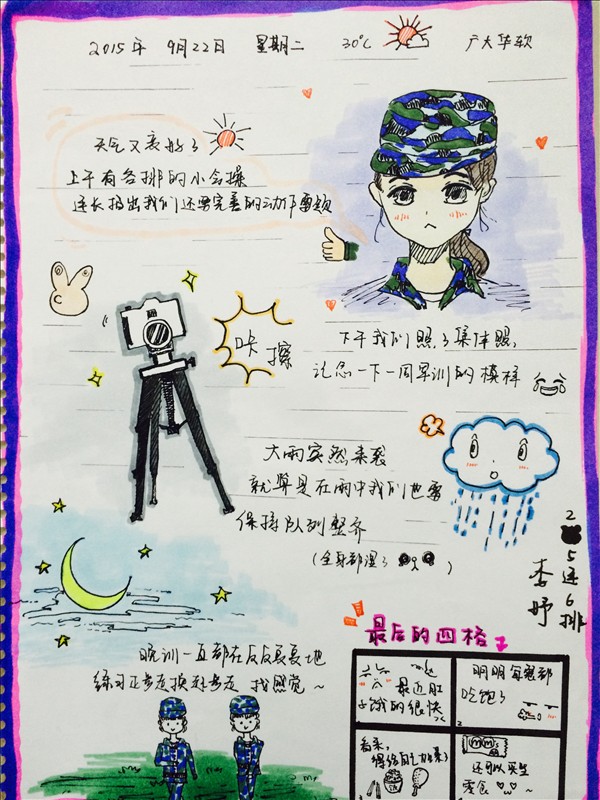 2015年 9月22日 星期二 30℃ 广大华软
天气又表好了
上午有各排的小会操
连长指出我们还要完善的动作要领
咔擦
下午我们照了集体照，
记念一下一周军训的模样
大雨突然来袭
就算是在雨中我们也要
保持队列整齐
(全身都湿了 )
2 5连6排
李妤
最后的四格
晚训一直都在反反复复地
练习正步走换趟步走 找感觉~
最近肚
子饿的很快
明明每餐都
吃饱了
看来，
得给自己加菜)
还可以买些
零食